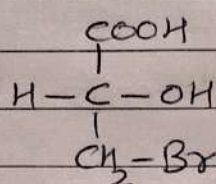 COOH
H - C - OH
CH2 - Br